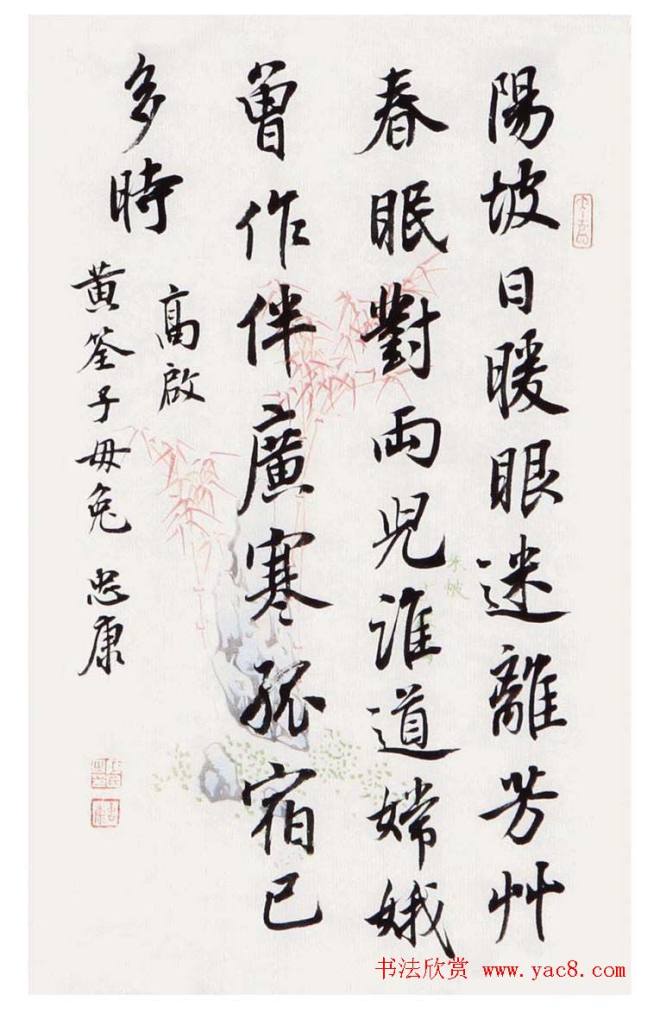 陽坡日暖眼迷離芳艸
春眠對兩兒誰道嫦娥
曾作伴廣寒孤宿已
多時
高啟
黃筌子母兔 忠康
书法欣赏 www.yac8.com